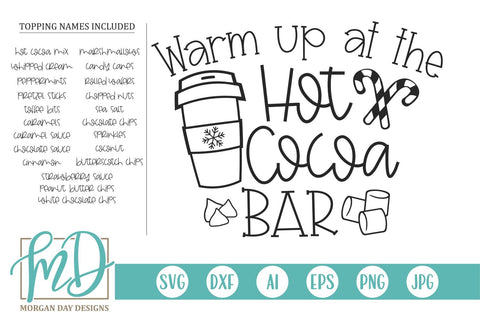 TOPPING NAMES INCLUDED
hot cocoa mix marshmallows
whipped cream candy canes
peppermints rolled wafers
pretzel sticks chopped nuts
toffee bits sea salt
caramels chocolate chips
caramel sauce sprinkles
chocolate sauce coconut
cinnamon butterscotch chips
strawberry sauce
peanut butter chips
white chocolate chips
Warm up at the
Hot
Cocoa
BAR
MD
MORGAN DAY DESIGNS
SVG DXF AI EPS PNG JPG